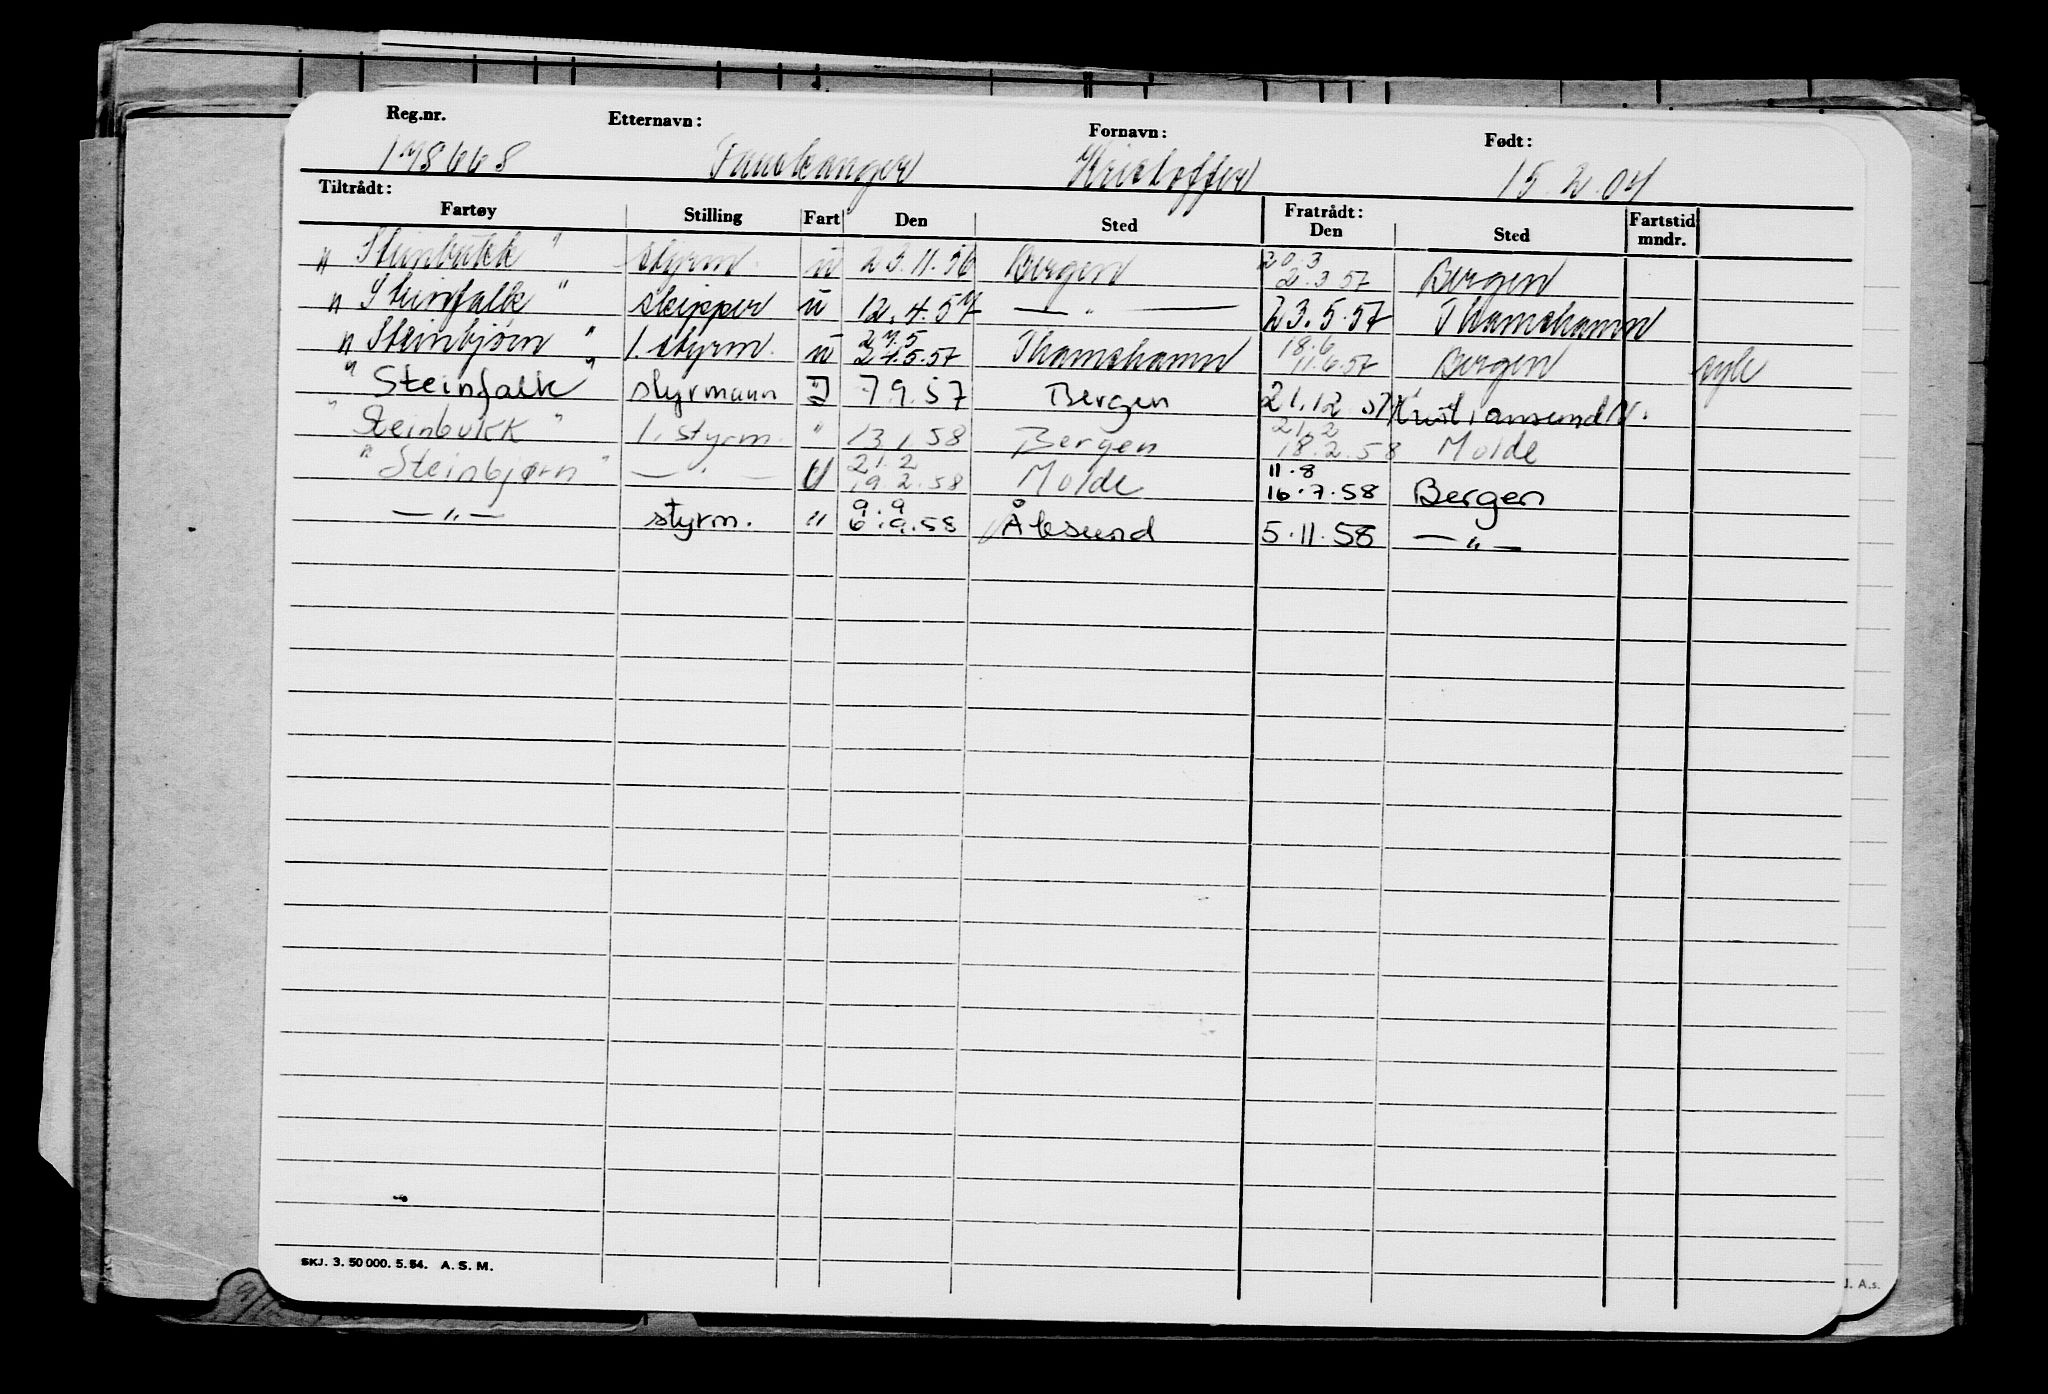 Reg.nr. Etternavn: Fornavn: Født:
178668 Fauskanger Kristoffer 15.2.04
Tiltrådt: Fratrådt:
Fartøy Stilling Fart Den Sted Den Sted Fartstid mndr.
"Steinbukk" styrm. u 23.11.56 Bergen 20.3 2.3.57 Bergen
"Steinfalk" skipper u 12.4.57 — " — 23.5.57 Thamshamn
"Steinbjørn" 1. styrm. u 27.5 24.5.57 Thamshamn 18.6 11.6.57 Bergen syk
"Steinfalk" styrmann 7.9.57 Bergen 21.12.57 Kristiansund N.
"Steinbukk" 1. styrm. " 13.1.58 Bergen 21.2 18.2.58 Molde
"Steinbjørn" — " — U 21.2 19.2.58 Molde 11.8 16.7.58 Bergen
— " — styrm. " 9.9 6.9.58 Ålesund 5.11.58 — " —
SKJ. 3. 50 000. 5. 54. A. S. M.
J. A.s.